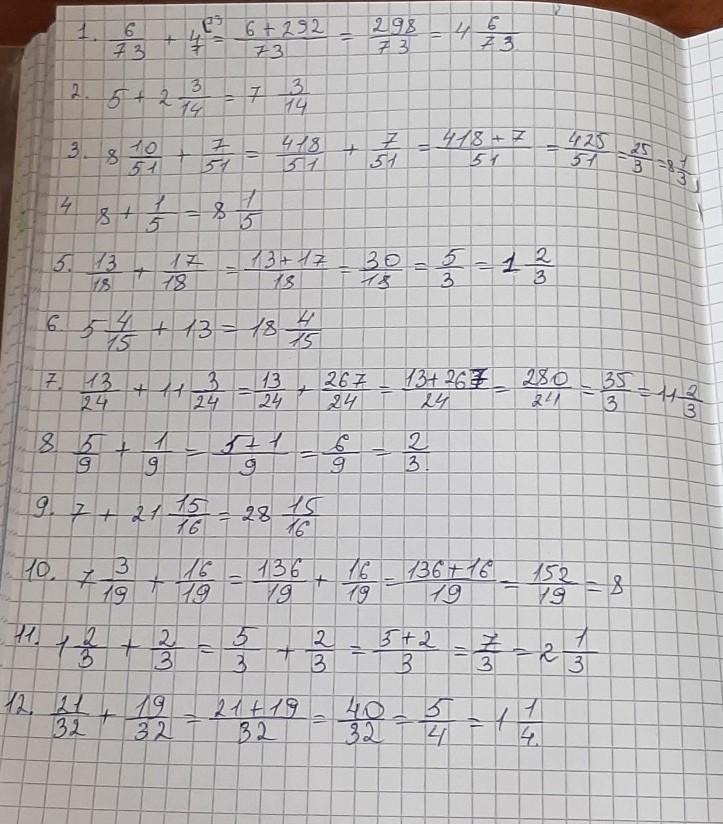 1. 6/73 + 4/7 = 6+292/73 = 298/73 = 4 6/73
2. 5 + 2 3/14 = 7 3/14
3. 8 10/51 + 7/51 = 418/51 + 7/51 = 418+7/51 = 425/51 = 25/3 = 8 1/3
4 8 + 1/5 = 8 1/5
5. 13/18 + 17/18 = 13+17/18 = 30/18 = 5/3 = 1 2/3
6. 5 4/15 + 13 = 18 4/15
7. 13/24 + 11 3/24 = 13/24 + 267/24 = 13+267/24 = 280/24 = 35/3 = 11 2/3
8. 5/9 + 1/9 = 5+1/9 = 6/9 = 2/3.
9. 7 + 21 15/16 = 28 15/16
10. 7 3/19 + 16/19 = 136/19 + 16/19 = 136+16/19 = 152/19 = 8
11. 1 2/3 + 2/3 = 5/3 + 2/3 = 5+2/3 = 7/3 = 2 1/3
12. 21/32 + 19/32 = 21+19/32 = 40/32 = 5/4 = 1 1/4.